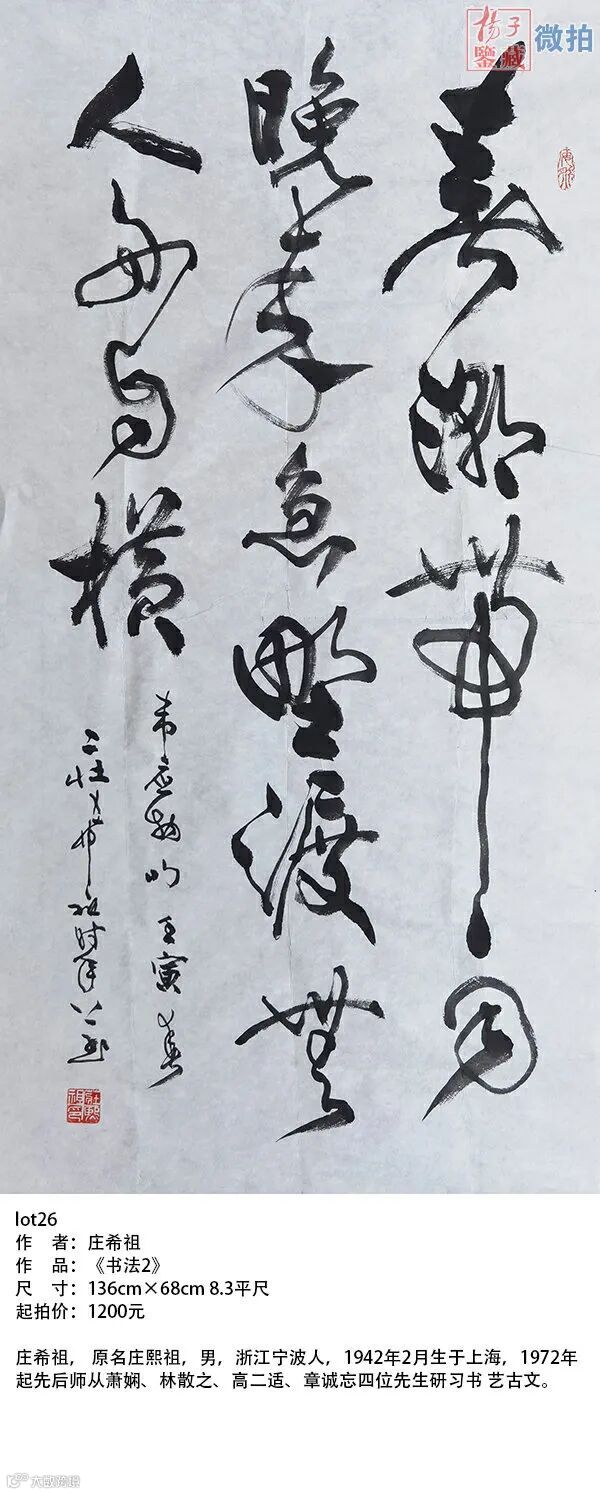 楊子
鑒藏
微拍
春潮帶雨
晚来急野渡無
人舟自横
韦应物
壬寅春
希祖时年八一
莊熙祖印
lot26
作 者：庄希祖
作 品：《书法2》
尺 寸：136cm×68cm 8.3平尺
起拍价：1200元
庄希祖， 原名庄熙祖，男，浙江宁波人，1942年2月生于上海，1972年
起先后师从萧娴、林散之、高二适、章诚忘四位先生研习书 艺古文。
大联跨境